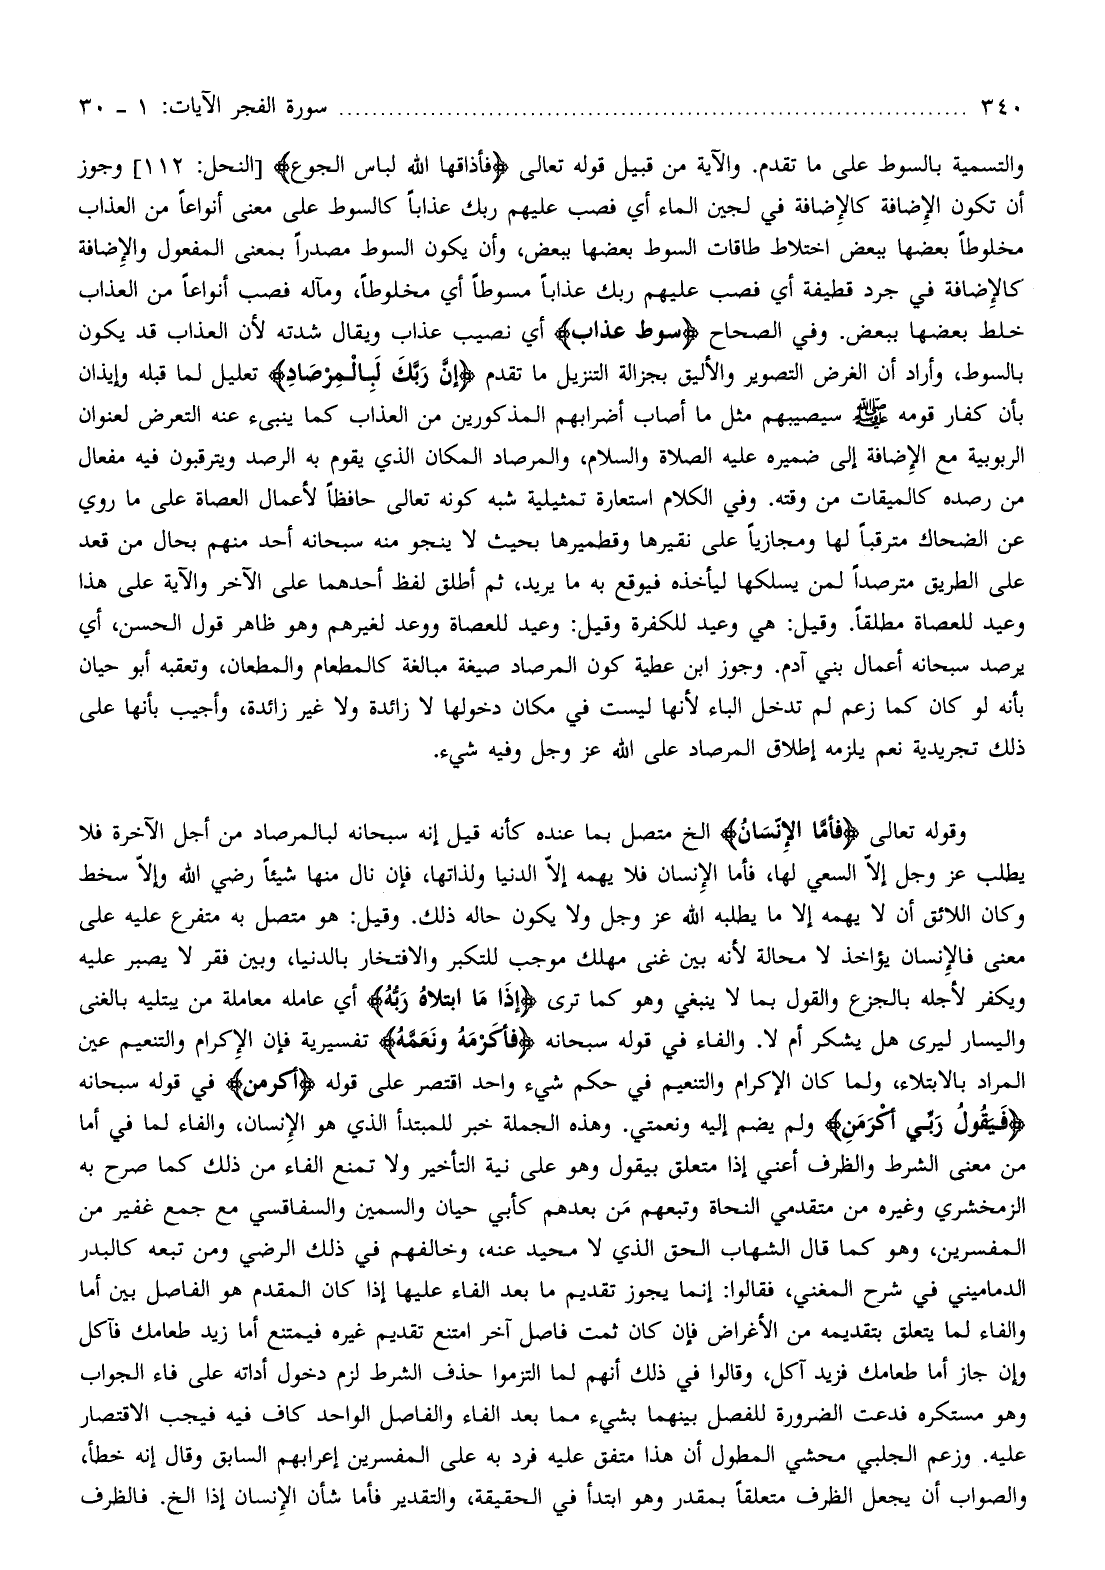 ٣٤٠ ........................................................ سورة الفجر الآيات: ١ ـ ٣٠
والتسمية بالسوط على ما تقدم. والآية من قبيل قوله تعالى ﴿فأذاقها الله لباس الجوع﴾ [النحل: ١١٢] وجوز
أن تكون الإضافة كالإضافة في لجين الماء أي فصب عليهم ربك عذاباً كالسوط على معنى أنواعاً من العذاب
مخلوطاً بعضها ببعض اختلاط طاقات السوط بعضها ببعض، وأن يكون السوط مصدراً بمعنى المفعول والإضافة
كالإضافة في جرد قطيفة أي فصب عليهم ربك عذاباً مسوطاً أي مخلوطاً، ومآله فصب أنواعاً من العذاب
خلط بعضها ببعض. وفي الصحاح ﴿سوط عذاب﴾ أي نصيب عذاب ويقال شدته لأن العذاب قد يكون
بالسوط، وأراد أن الغرض التصوير والأليق بجزالة التنزيل ما تقدم ﴿إنَّ رَبَّكَ لَبِالْمِرْصَادِ﴾ تعليل لما قبله وإيذان
بأن كفار قومه ﷺ سيصيبهم مثل ما أصاب أضرابهم المذكورين من العذاب كما ينبىء عنه التعرض لعنوان
الربوبية مع الإضافة إلى ضميره عليه الصلاة والسلام، والمرصاد المكان الذي يقوم به الرصد ويترقبون فيه مفعال
من رصده كالميقات من وقته. وفي الكلام استعارة تمثيلية شبه كونه تعالى حافظاً لأعمال العصاة على ما روي
عن الضحاك مترقباً لها ومجازياً على نقيرها وقطميرها بحيث لا ينجو منه سبحانه أحد منهم بحال من قعد
على الطريق مترصداً لمن يسلكها ليأخذه فيوقع به ما يريد، ثم أطلق لفظ أحدهما على الآخر والآية على هذا
وعيد للعصاة مطلقاً. وقيل: هي وعيد للكفرة وقيل: وعيد للعصاة ووعد لغيرهم وهو ظاهر قول الحسن، أي
يرصد سبحانه أعمال بني آدم. وجوز ابن عطية كون المرصاد صيغة مبالغة كالمطعام والمطعان، وتعقبه أبو حيان
بأنه لو كان كما زعم لم تدخل الباء لأنها ليست في مكان دخولها لا زائدة ولا غير زائدة، وأجيب بأنها على
ذلك تجريدية نعم يلزمه إطلاق المرصاد على الله عز وجل وفيه شيء.
وقوله تعالى ﴿فأمَّا الإنْسَانُ﴾ الخ متصل بما عنده كأنه قيل إنه سبحانه لبالمرصاد من أجل الآخرة فلا
يطلب عز وجل إلاّ السعي لها، فأما الإنسان فلا يهمه إلاّ الدنيا ولذاتها، فإن نال منها شيئاً رضي الله وإلاّ سخط
وكان اللائق أن لا يهمه إلا ما يطلبه الله عز وجل ولا يكون حاله ذلك. وقيل: هو متصل به متفرع عليه على
معنى فالإنسان يؤاخذ لا محالة لأنه بين غنى مهلك موجب للتكبر والافتخار بالدنيا، وبين فقر لا يصبر عليه
ويكفر لأجله بالجزع والقول بما لا ينبغي وهو كما ترى ﴿إذَا مَا ابتلاهُ رَبُّهُ﴾ أي عامله معاملة من يبتليه بالغنى
واليسار ليرى هل يشكر أم لا. والفاء في قوله سبحانه ﴿فأكَرْمَهُ ونَعَّمَهُ﴾ تفسيرية فإن الإكرام والتنعيم عين
المراد بالابتلاء، ولما كان الإكرام والتنعيم في حكم شيء واحد اقتصر على قوله ﴿أكرمن﴾ في قوله سبحانه
﴿فَيَقُولُ رَبِّي أكْرَمَنِ﴾ ولم يضم إليه ونعمتي. وهذه الجملة خبر للمبتدأ الذي هو الإنسان، والفاء لما في أما
من معنى الشرط والظرف أعني إذا متعلق بيقول وهو على نية التأخير ولا تمنع الفاء من ذلك كما صرح به
الزمخشري وغيره من متقدمي النحاة وتبعهم مَن بعدهم كأبي حيان والسمين والسفاقسي مع جمع غفير من
المفسرين، وهو كما قال الشهاب الحق الذي لا محيد عنه، وخالفهم في ذلك الرضي ومن تبعه كالبدر
الدماميني في شرح المغني، فقالوا: إنما يجوز تقديم ما بعد الفاء عليها إذا كان المقدم هو الفاصل بين أما
والفاء لما يتعلق بتقديمه من الأغراض فإن كان ثمت فاصل آخر امتنع تقديم غيره فيمتنع أما زيد طعامك فآكل
وإن جاز أما طعامك فزيد آكل، وقالوا في ذلك أنهم لما التزموا حذف الشرط لزم دخول أداته على فاء الجواب
وهو مستكره فدعت الضرورة للفصل بينهما بشيء مما بعد الفاء والفاصل الواحد كاف فيه فيجب الاقتصار
عليه. وزعم الجلبي محشي المطول أن هذا متفق عليه فرد به على المفسرين إعرابهم السابق وقال إنه خطأ،
والصواب أن يجعل الظرف متعلقاً بمقدر وهو ابتدأ في الحقيقة، والتقدير فأما شأن الإنسان إذا الخ. فالظرف